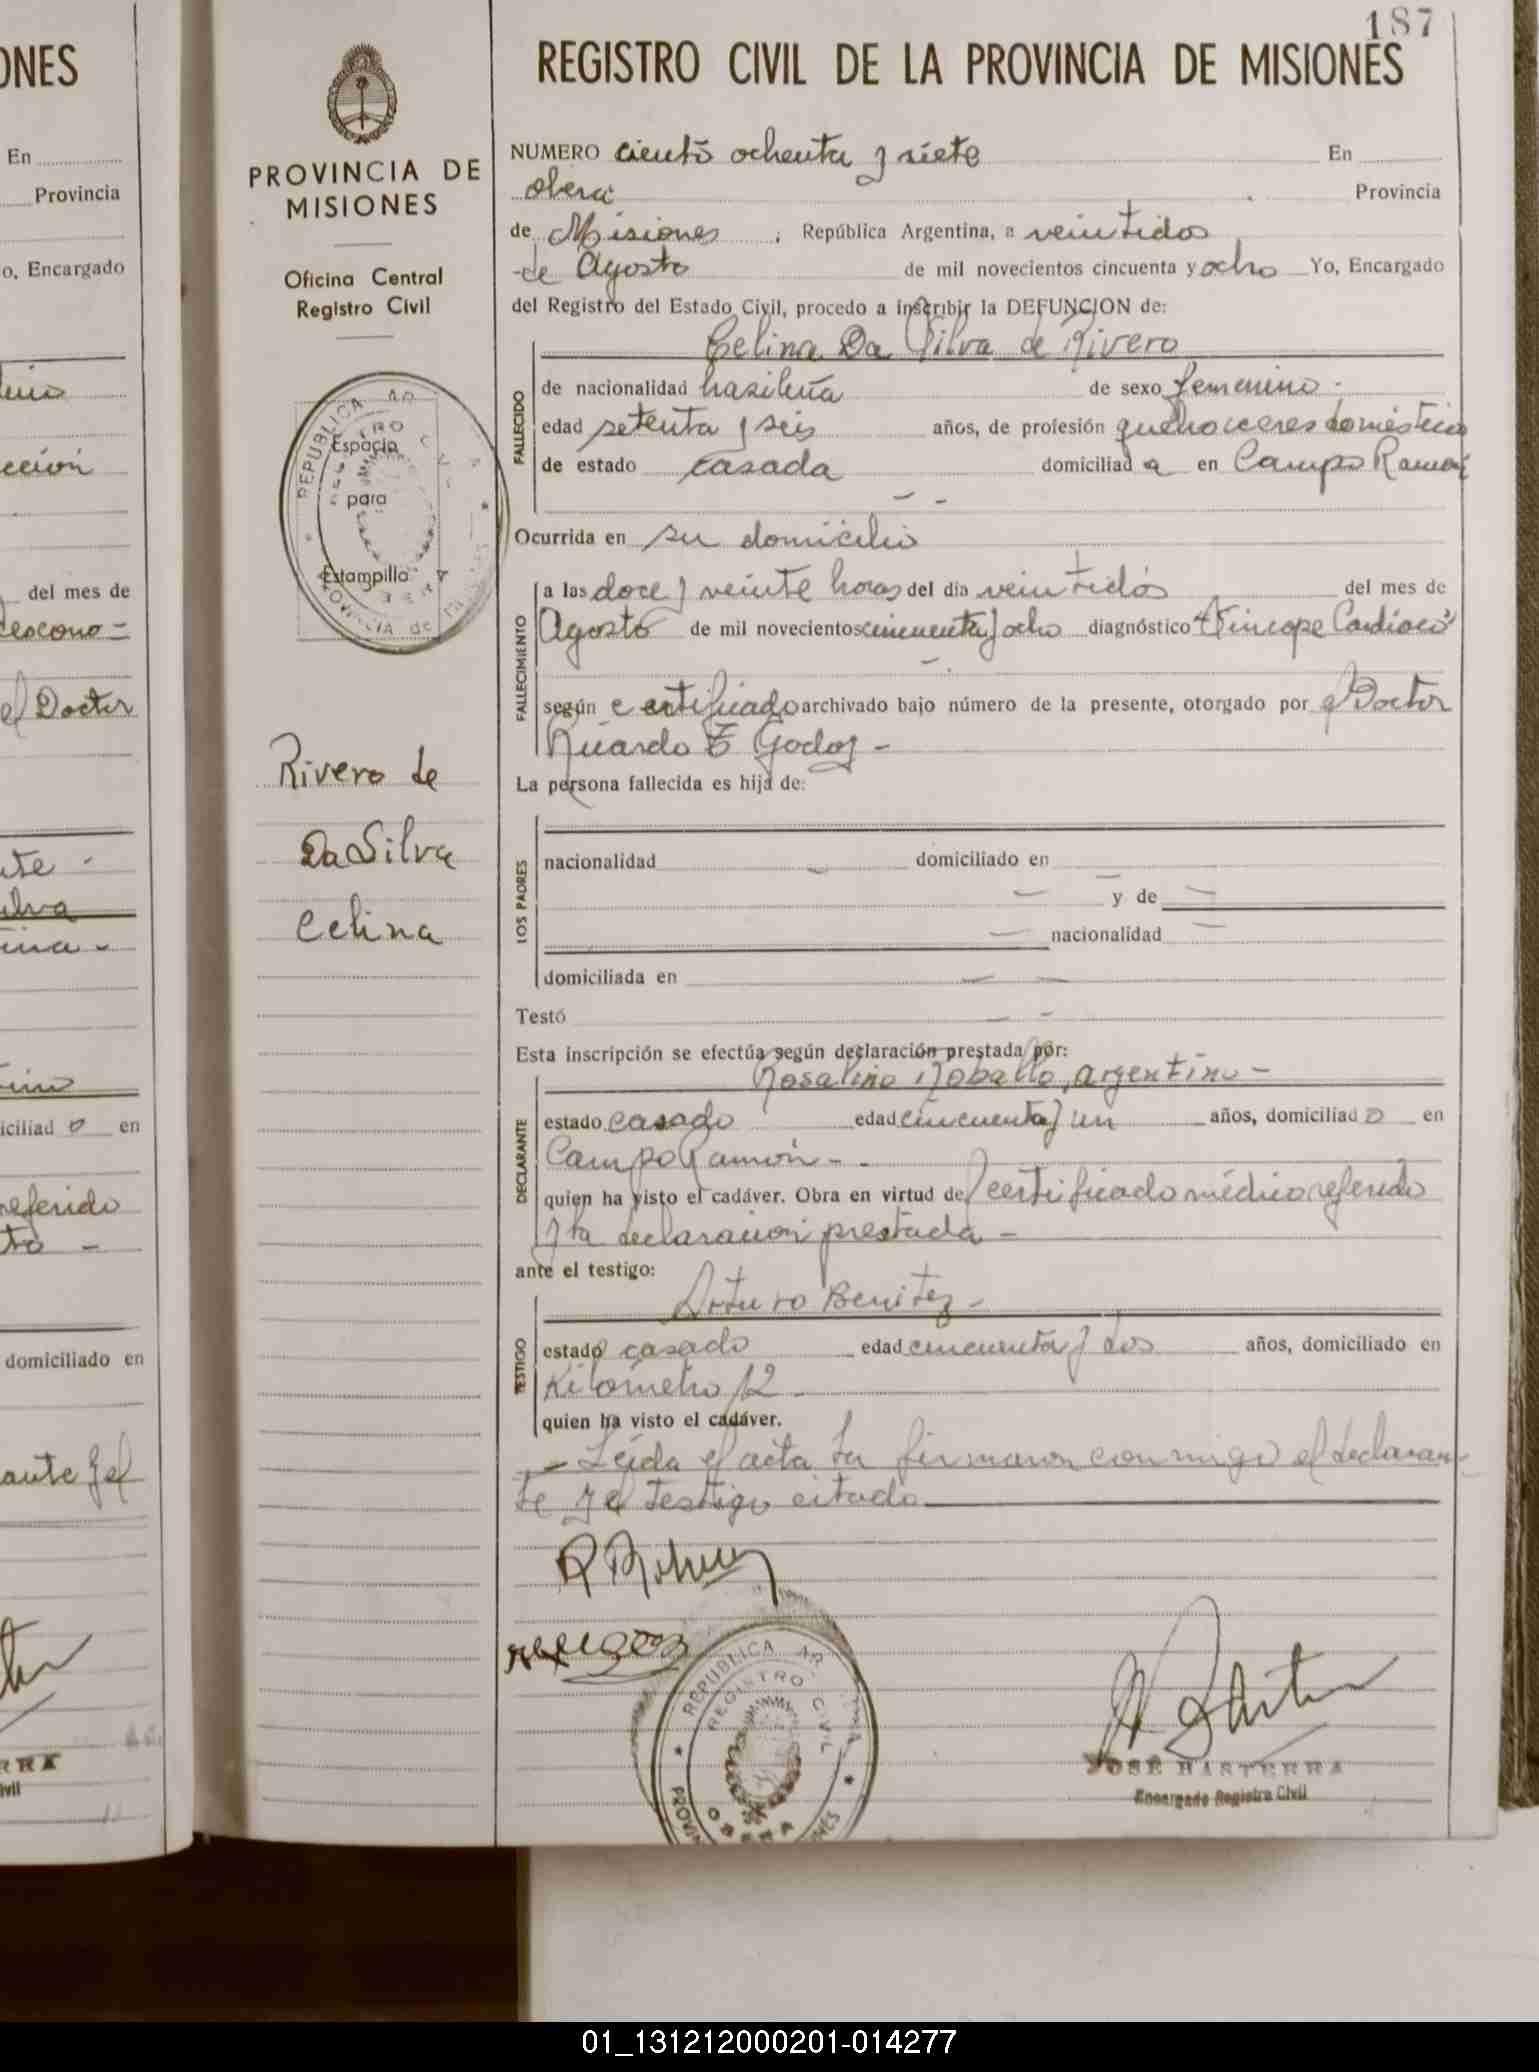 187
REGISTRO CIVIL DE LA PROVINCIA DE MISIONES
PROVINCIA DE
MISIONES
Oficina Central
Registro Civil
Espacio
para
Estampilla
Rivero de
Da Silva
Celina
NUMERO ciento ochenta y siete En
Oberá Provincia
de Misiones, República Argentina, a veintidos
de Agosto de mil novecientos cincuenta y ocho Yo, Encargado
del Registro del Estado Civil, procedo a inscribir la DEFUNCION de:
Celina Da Silva de Rivero
FALLECIDO
de nacionalidad brasileña de sexo femenino -
edad setenta y seis años, de profesión quehaceres domésticos
de estado casada domiciliad a en Campo Ramón
Ocurrida en su domicilio
FALLECIMIENTO
a las doce y veinte horas del día veintidós del mes de
Agosto de mil novecientos cincuenta y ocho diagnóstico Síncope Cardíaco
según certificado archivado bajo número de la presente, otorgado por el Doctor
Ricardo E Godoy -
La persona fallecida es hija de:
LOS PADRES
nacionalidad - domiciliado en -
- y de -
- nacionalidad -
domiciliada en - -
Testó - -
Esta inscripción se efectúa según declaración prestada por:
Rosalino Roballo, argentino -
DECLARANTE
estado casado edad cincuenta y un años, domiciliad o en
Campo Ramón -
quien ha visto el cadáver. Obra en virtud del certificado médico referido
y la declaración prestada -
ante el testigo:
Arturo Benitez -
TESTIGO
estado casado edad cincuenta y dos años, domiciliado en
Kilómetro 12 -
quien ha visto el cadáver.
- Leída el acta la firmaron conmigo el declaran-
te y el testigo citado
REPUBLICA AR
REGISTRO CIVIL
JOSÉ BASTERRA
Encargado Registro Civil
ONES
En
Provincia
o, Encargado
del mes de
el Doctor
iciliad o en
referido
domiciliado en
ante y el
01_131212000201-014277